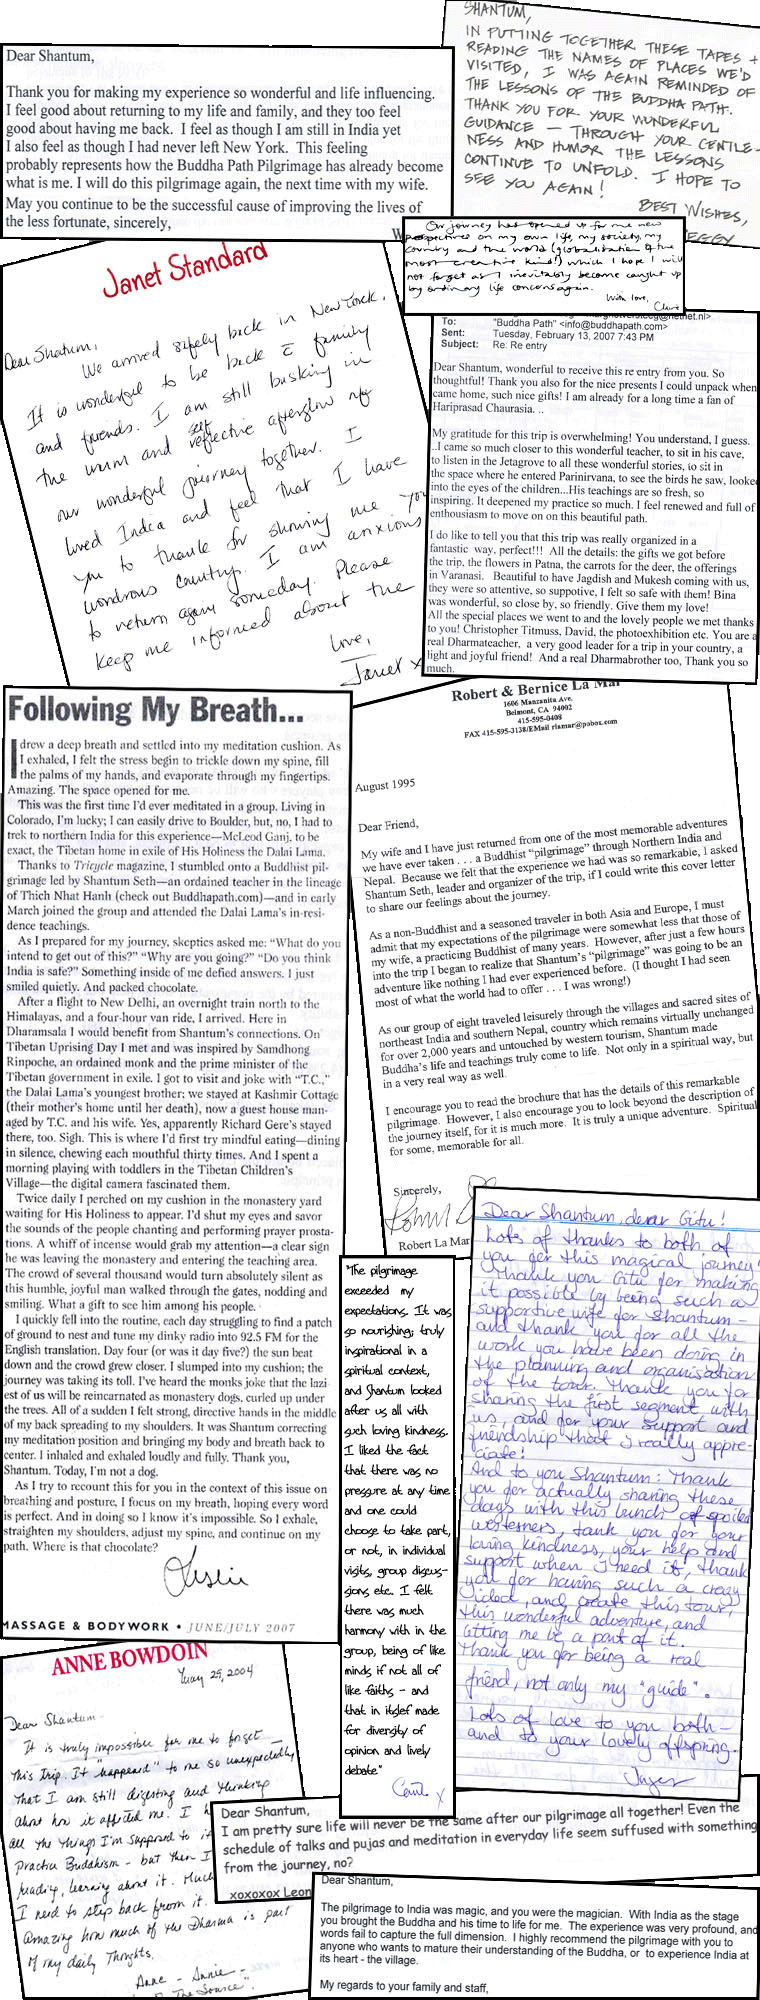 Dear Shantum,
Thank you for making my experience so wonderful and life influencing.
I feel good about returning to my life and family, and they too feel
good about having me back.  I feel as though I am still in India yet
I also feel as though I had never left New York.  This feeling
probably represents how the Buddha Path Pilgrimage has already become
what is me. I will do this pilgrimage again, the next time with my wife.
May you continue to be the successful cause of improving the lives of
the less fortunate, sincerely,
SHANTUM,
IN PUTTING TOGETHER THESE TAPES +
READING THE NAMES OF PLACES WE'D
VISITED, I WAS AGAIN REMINDED OF
THE LESSONS OF THE BUDDHA PATH.
THANK YOU FOR YOUR WUNDERFUL
GUIDANCE — THROUGH YOUR GENTLE-
NESS AND HUMOR THE LESSONS
CONTINUE TO UNFOLD. I HOPE TO
SEE YOU AGAIN!
BEST WISHES,
EGGY
Our journey has opened up for me new
perspectives on my own life, my society, my
country and the world (globalisation of the
most creative kind!) which I hope I will
not forget as I inevitably become caught up
by ordinary life concerns again.
With love,
Claire
Janet Standard
Dear Shantum,
We arrived safely back in New York.
It is wonderful to be back c̄ family
and friends. I am still basking in
the warm and self reflective afterglow of
our wonderful journey together. I
loved India and feel that I have
you to thank for showing me your
wondrous country. I am anxious
to return again someday. Please
keep me informed about the
Love,
Janet x
To: "Buddha Path" <info@buddhapath.com>
Sent: Tuesday, February 13, 2007 7:43 PM
Subject: Re: Re entry
Dear Shantum, wonderful to receive this re entry from you. So
thoughtful! Thank you also for the nice presents I could unpack when
came home, such nice gifts! I am already for a long time a fan of
Hariprasad Chaurasia. ..
My gratitude for this trip is overwhelming! You understand, I guess.
..I came so much closer to this wonderful teacher, to sit in his cave,
to listen in the Jetagrove to all these wonderful stories, to sit in
the space where he entered Parinirvana, to see the birds he saw, looked
into the eyes of the children...His teachings are so fresh, so
inspiring. It deepened my practice so much. I feel renewed and full of
enthousiasm to move on on this beautiful path.
I do like to tell you that this trip was really organized in a
fantastic  way, perfect!!!  All the details: the gifts we got before
the trip, the flowers in Patna, the carrots for the deer, the offerings
in Varanasi.   Beautiful to have Jagdish and Mukesh coming with us,
they were so attentive, so suppotive, I felt so safe with them! Bina
was wonderful, so close by, so friendly. Give them my love!
All the special places we went to and the lovely people we met thanks
to you! Christopher Titmuss, David, the photoexhibition etc. You are a
real Dharmateacher,  a very good leader for a trip in your country, a
light and joyful friend!  And a real Dharmabrother too, Thank you so
much.
Following My Breath...
I drew a deep breath and settled into my meditation cushion. As
I exhaled, I felt the stress begin to trickle down my spine, fill
the palms of my hands, and evaporate through my fingertips.
Amazing. The space opened for me.
This was the first time I'd ever meditated in a group. Living in
Colorado, I'm lucky; I can easily drive to Boulder, but, no, I had to
trek to northern India for this experience—McLeod Ganj, to be
exact, the Tibetan home in exile of His Holiness the Dalai Lama.
Thanks to Tricycle magazine, I stumbled onto a Buddhist pil-
grimage led by Shantum Seth—an ordained teacher in the lineage
of Thich Nhat Hanh (check out Buddhapath.com)—and in early
March joined the group and attended the Dalai Lama's in-resi-
dence teachings.
As I prepared for my journey, skeptics asked me: "What do you
intend to get out of this?" "Why are you going?" "Do you think
India is safe?" Something inside of me defied answers. I just
smiled quietly. And packed chocolate.
After a flight to New Delhi, an overnight train north to the
Himalayas, and a four-hour van ride, I arrived. Here in
Dharamsala I would benefit from Shantum's connections. On
Tibetan Uprising Day I met and was inspired by Samdhong
Rinpoche, an ordained monk and the prime minister of the
Tibetan government in exile. I got to visit and joke with "T.C.,"
the Dalai Lama's youngest brother; we stayed at Kashmir Cottage
(their mother's home until her death), now a guest house man-
aged by T.C. and his wife. Yes, apparently Richard Gere's stayed
there, too. Sigh. This is where I'd first try mindful eating—dining
in silence, chewing each mouthful thirty times. And I spent a
morning playing with toddlers in the Tibetan Children's
Village—the digital camera fascinated them.
Twice daily I perched on my cushion in the monastery yard
waiting for His Holiness to appear. I'd shut my eyes and savor
the sounds of the people chanting and performing prayer prostra-
tions. A whiff of incense would grab my attention—a clear sign
he was leaving the monastery and entering the teaching area.
The crowd of several thousand would turn absolutely silent as
this humble, joyful man walked through the gates, nodding and
smiling. What a gift to see him among his people.
I quickly fell into the routine, each day struggling to find a patch
of ground to nest and tune my dinky radio into 92.5 FM for the
English translation. Day four (or was it day five?) the sun beat
down and the crowd grew closer. I slumped into my cushion; the
journey was taking its toll. I've heard the monks joke that the lazi-
est of us will be reincarnated as monastery dogs, curled up under
the trees. All of a sudden I felt strong, directive hands in the middle
of my back spreading to my shoulders. It was Shantum correcting
my meditation position and bringing my body and breath back to
center. I inhaled and exhaled loudly and fully. Thank you,
Shantum. Today, I'm not a dog.
As I try to recount this for you in the context of this issue on
breathing and posture, I focus on my breath, hoping every word
is perfect. And in doing so I know it's impossible. So I exhale,
straighten my shoulders, adjust my spine, and continue on my
path. Where is that chocolate?
Leslie
MASSAGE & BODYWORK • JUNE/JULY 2007
Robert & Bernice La Mar
1606 Manzanita Ave.
Belmont, CA 94002
415-595-0408
FAX 415-595-3138/EMail rlamar@pobox.com
August 1995
Dear Friend,
My wife and I have just returned from one of the most memorable adventures
we have ever taken . . . a Buddhist "pilgrimage" through Northern India and
Nepal.  Because we felt that the experience we had was so remarkable, I asked
Shantum Seth, leader and organizer of the trip, if I could write this cover letter
to share our feelings about the journey.
As a non-Buddhist and a seasoned traveler in both Asia and Europe, I must
admit that my expectations of the pilgrimage were somewhat less that those of
my wife, a practicing Buddhist of many years.  However, after just a few hours
into the trip I began to realize that Shantum's "pilgrimage" was going to be an
adventure like nothing I had ever experienced before.  (I thought I had seen
most of what the world had to offer . . . I was wrong!)
As our group of eight traveled leisurely through the villages and sacred sites of
northeast India and southern Nepal, country which remains virtually unchanged
for over 2,000 years and untouched by western tourism, Shantum made
Buddha's life and teachings truly come to life.  Not only in a spiritual way, but
in a very real way as well.
I encourage you to read the brochure that has the details of this remarkable
pilgrimage.  However, I also encourage you to look beyond the description of
the journey itself, for it is much more.  It is truly a unique adventure.  Spiritual
for some, memorable for all.
Sincerely,
Robert La Mar
"The pilgrimage
exceeded my
expectations. It was
so nourishing; truly
inspirational in a
spiritual context,
and Shantum looked
after us all with
such loving kindness.
I liked the fact
that there was no
pressure at any time
and one could
choose to take part,
or not, in individual
visits, group discus-
sions etc. I felt
there was much
harmony with in the
group, being of like
minds if not all of
like faiths - and
that in itslef made
for diversity of
opinion and lively
debate"
Dear Shantum, dear Gitu!
Lots of thanks to both of
you for this magical journey!
Thank you Gitu for making
it possible by being such a
supportive wife for Shantum -
and thank you for all the
work you have been doing in
the planning and organisation
of the tour. Thank you for
sharing the first segment with
us, and for your support and
friendship that I really appre-
ciate!
And to you Shantum: Thank
you for actually sharing these
days with this bunch of spoiled
westerners, tank you for your
loving kindness, your help and
support when I need it, thank
you for having such a crazy
idea, and create this tour,
this wonderful adventure, and
letting me be a part of it.
Thank you for being a real
friend, not only my "guide".
Lots of love to you both -
and to your lovely offspring.
ANNE BOWDOIN
May 25, 2004
Dear Shantum -
It is truly impossible for me to forget
This Trip. It "happened" to me so unexpectedly
That I am still digesting and thinking
about how it affected me. I
all the things I'm supposed to
practice Buddhism - but then I
reading, learning about it. Much
I need to step back from it.
amazing how much of the Dharma is part
of my daily Thoughts.
Anne - Annie -
"The Source".
Dear Shantum,
I am pretty sure life will never be the same after our pilgrimage all together! Even the
schedule of talks and pujas and meditation in everyday life seem suffused with something
from the journey, no?
xoxoxox Leon
Dear Shantum,
The pilgrimage to India was magic, and you were the magician.  With India as the stage
you brought the Buddha and his time to life for me.  The experience was very profound, and
words fail to capture the full dimension.  I highly recommend the pilgrimage with you to
anyone who wants to mature their understanding of the Buddha, or  to experience India at
its heart - the village.
My regards to your family and staff,